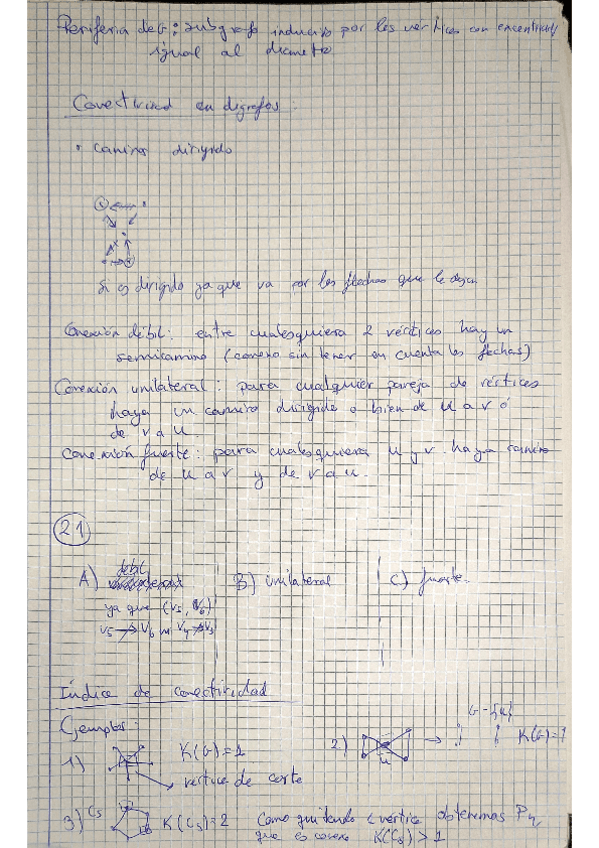 Periferia de G: subgrafo inducido por los vértices con excentricidad
igual al diámetro
Conectividad en digrafos:
• camino dirigido
Si es dirigido ya que va por las flechas que le dejan
Conexión débil: entre cualesquiera 2 vértices hay un
semicamino (conexo sin tener en cuenta las flechas)
Conexión unilateral: para cualquier pareja de vértices
haya un camino dirigido o bien de u a v ó
de v a u.
Conexión fuerte: para cualesquiera u y v haya camino
de u a v y de v a u.
21
A) débil B) unilateral C) fuerte.
ya que (v5, v6)
Índice de conectividad
Ejemplos:
G-{u}
1) K(G)=1 2) u → K(G)=1
vértice de corte
3) C5 K(C5)=2 Como quitando 1 vértice obtenemos P4
que es conexo K(C5)>1